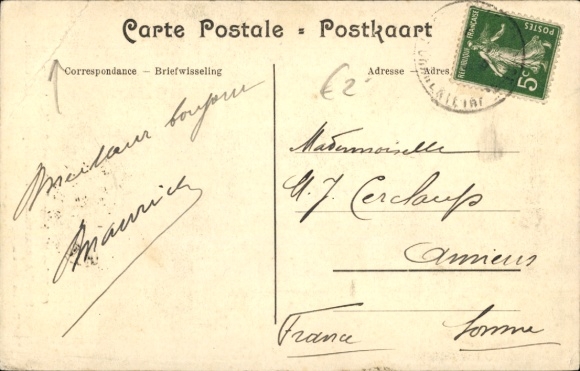 Carte Postale = Postkaart
Correspondance — Briefwisseling
Adresse — Adres
Meilleur bonjour
Maurice
€ 2-
Mademoiselle
M. J. Cercloup
Amiens
Somme
France
REPUBLIQUE FRANÇAISE
POSTES
5c